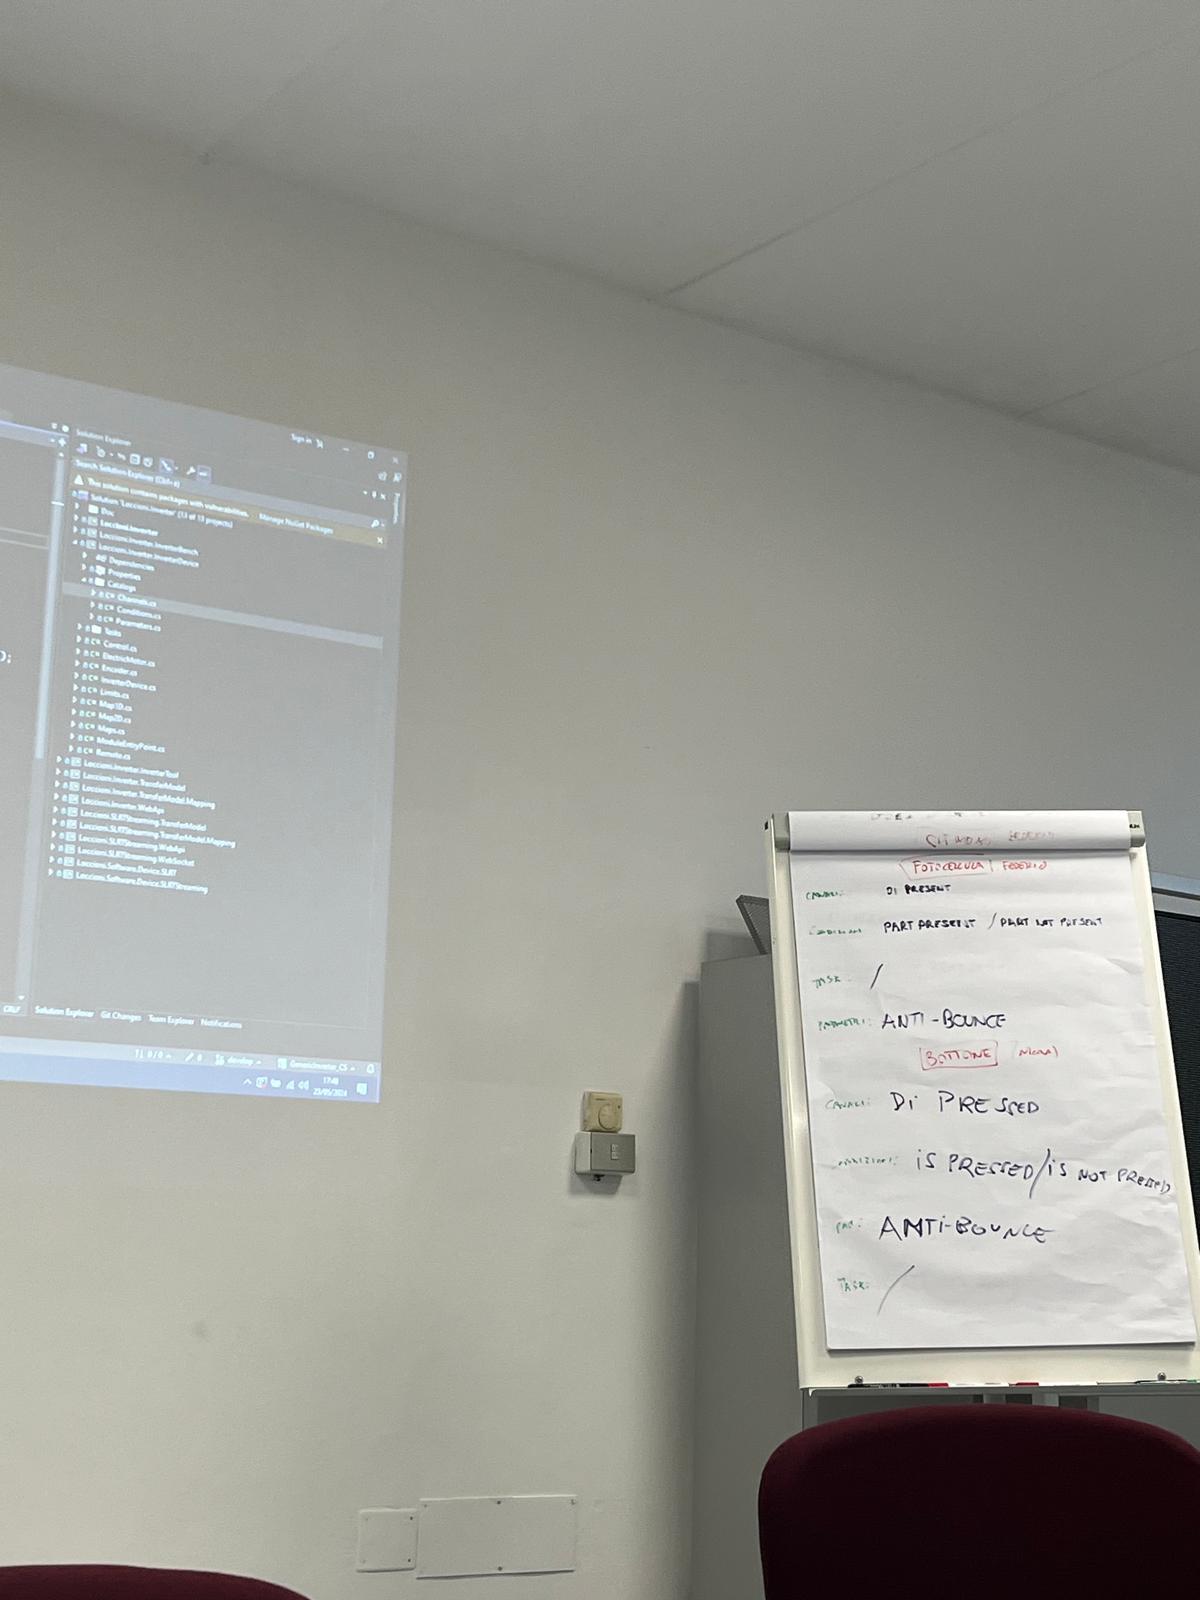 Solution Explorer
Sign in
Search Solution Explorer (Ctrl+è)
This solution contains packages with vulnerabilities. Manage NuGet Packages
Solution 'Loccioni.Inverter' (13 of 13 projects)
Doc
Loccioni.Inverter
Loccioni.Inverter.InverterBench
Loccioni.Inverter.InverterDevice
Dependencies
Properties
Catalogs
C# Channels.cs
C# Conditions.cs
C# Parameters.cs
Tasks
C# Control.cs
C# ElectricMotor.cs
C# Encoder.cs
C# InverterDevice.cs
C# Limits.cs
C# Map1D.cs
C# Map2D.cs
C# Maps.cs
C# ModuleEntryPoint.cs
C# Remote.cs
Loccioni.Inverter.InverterTool
Loccioni.Inverter.TransferModel
Loccioni.Inverter.TransferModel.Mapping
Loccioni.Inverter.WebApi
Loccioni.SLRTStreaming.TransferModel
Loccioni.SLRTStreaming.TransferModel.Mapping
Loccioni.SLRTStreaming.WebApi
Loccioni.SLRTStreaming.WebSocket
Loccioni.Software.Device.SLRT
Loccioni.Software.Device.SLRTStreaming
CRLF
Solution Explorer Git Changes Team Explorer Notifications
0 / 0 develop GenericInverter_CS
17:48
23/05/2024
FOTOCELLULA
CANALI: DI PRESENT
PART PRESENT / PART NOT PRESENT
TASK: /
PARAMETRI: ANTI-BOUNCE
BOTTONE
CANALI: Di PRESSED
iS PRESSED/iS NOT PRESSED
PAR: ANTi-BOUNCE
TASK: /